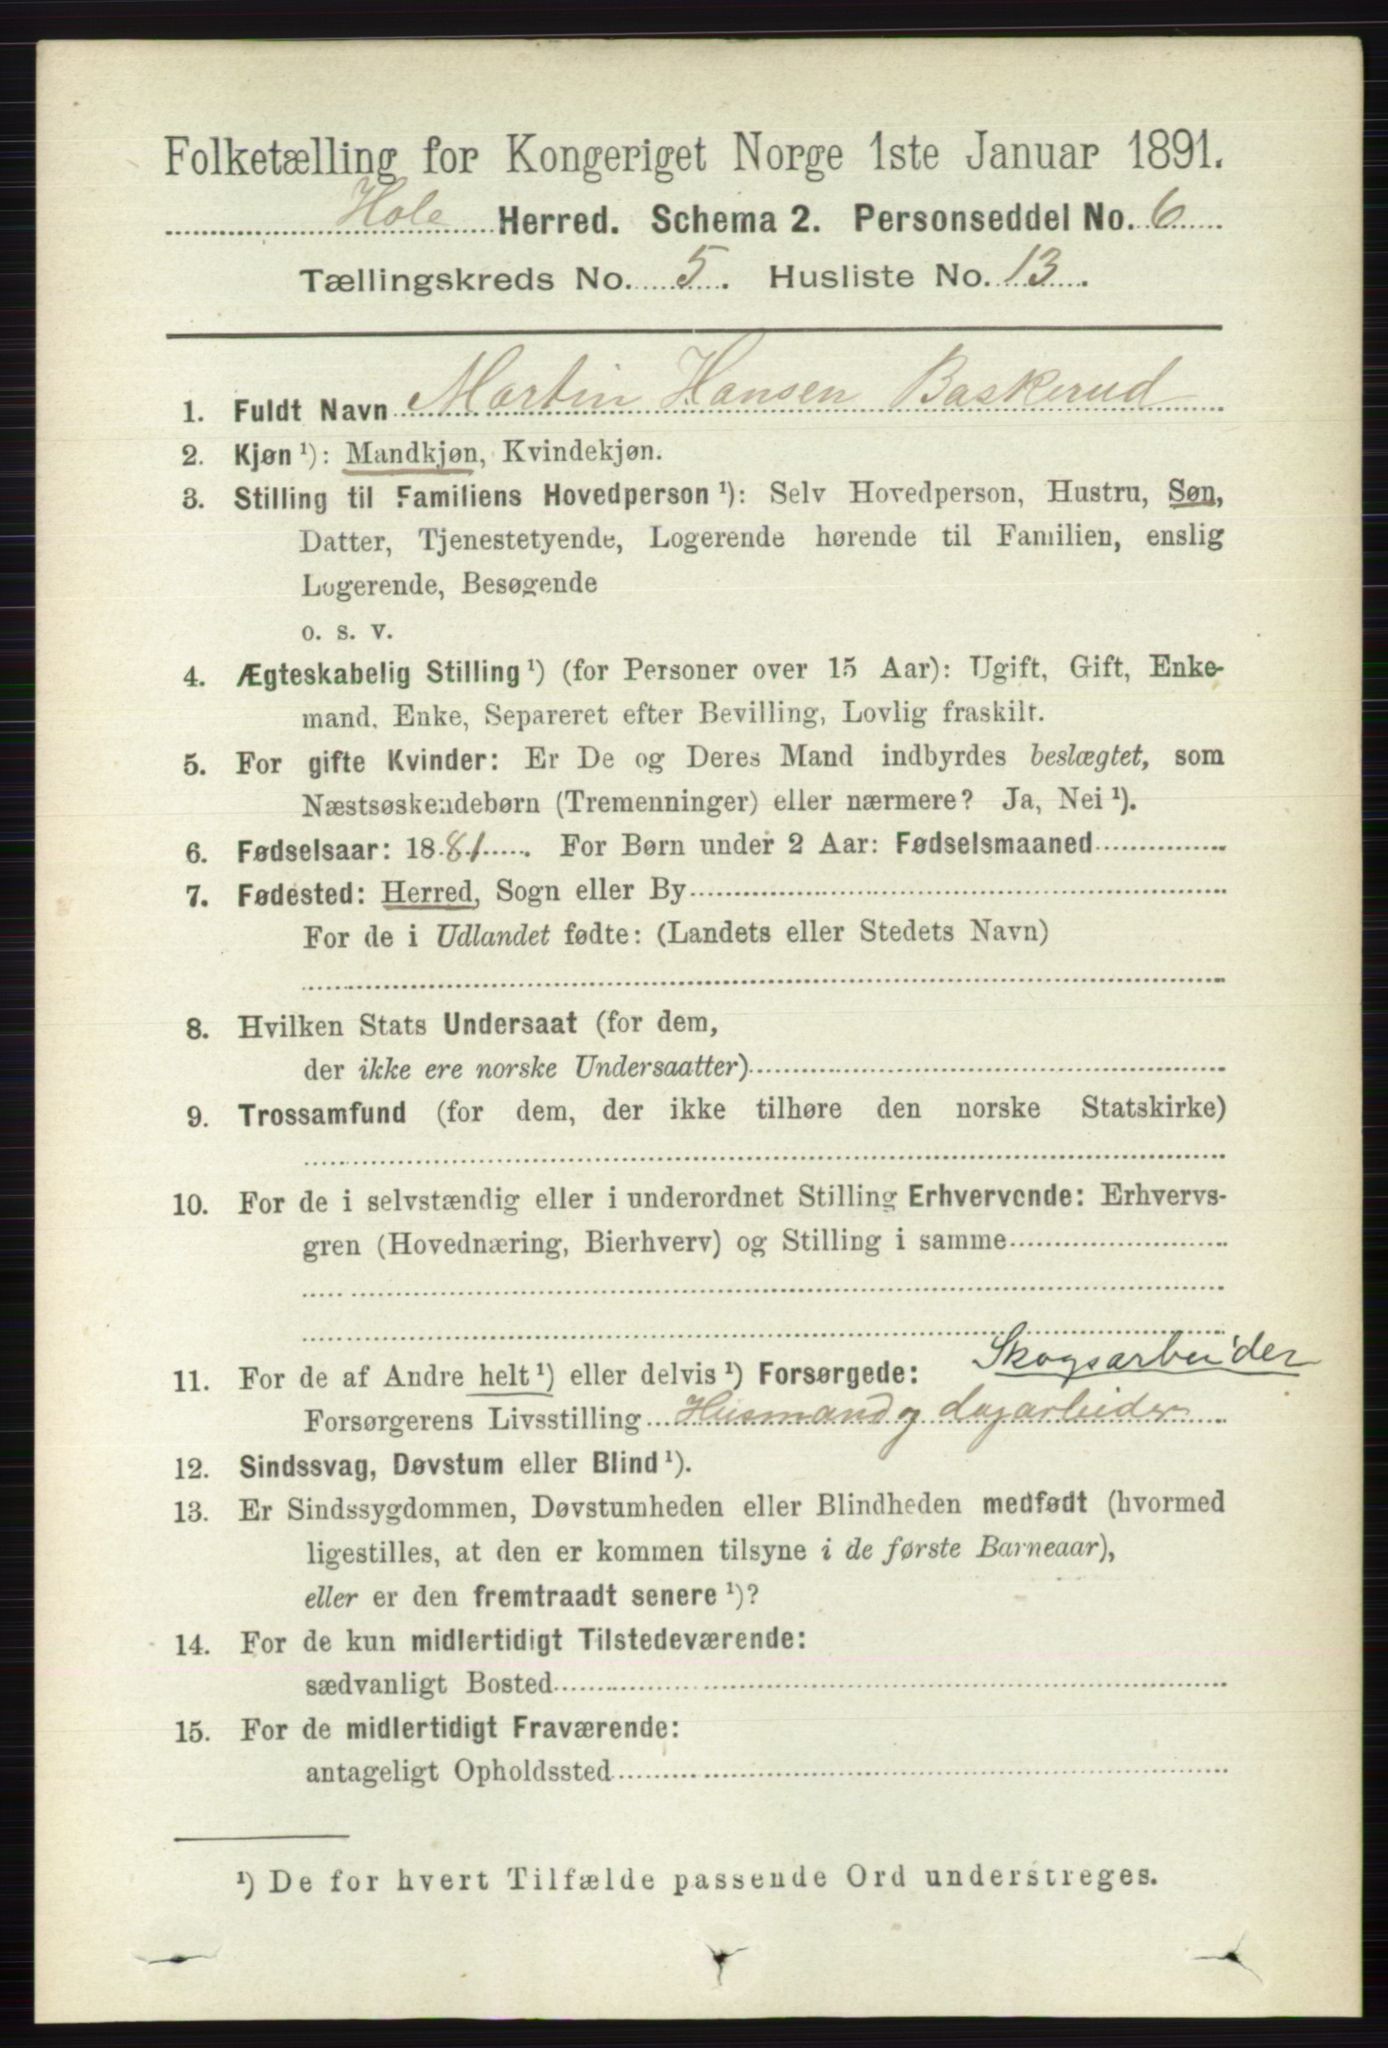 Folketælling for Kongeriget Norge 1ste Januar 1891.
Hole Herred. Schema 2. Personseddel No. 6
Tællingskreds No. 5. Husliste No. 13.
1. Fuldt Navn Martin Hansen Baskerud
2. Kjøn ¹): Mandkjøn, Kvindekjøn.
3. Stilling til Familiens Hovedperson ¹): Selv Hovedperson, Hustru, Søn,
Datter, Tjenestetyende, Logerende hørende til Familien, enslig
Logerende, Besøgende
o. s. v.
4. Ægteskabelig Stilling ¹) (for Personer over 15 Aar): Ugift, Gift, Enke-
mand, Enke, Separeret efter Bevilling, Lovlig fraskilt.
5. For gifte Kvinder: Er De og Deres Mand indbyrdes beslægtet, som
Næstsøskendebørn (Tremenninger) eller nærmere? Ja, Nei ¹).
6. Fødselsaar: 1881. For Børn under 2 Aar: Fødselsmaaned
7. Fødested: Herred, Sogn eller By
For de i Udlandet fødte: (Landets eller Stedets Navn)
8. Hvilken Stats Undersaat (for dem,
der ikke ere norske Undersaatter)
9. Trossamfund (for dem, der ikke tilhøre den norske Statskirke)
10. For de i selvstændig eller i underordnet Stilling Erhvervende: Erhvervs-
gren (Hovednæring, Bierhverv) og Stilling i samme
Skogsarbeider
11. For de af Andre helt ¹) eller delvis ¹) Forsørgede:
Forsørgerens Livsstilling Husmand og dagarbeider
12. Sindssvag, Døvstum eller Blind ¹).
13. Er Sindssygdommen, Døvstumheden eller Blindheden medfødt (hvormed
ligestilles, at den er kommen tilsyne i de første Barneaar),
eller er den fremtraadt senere ¹)?
14. For de kun midlertidigt Tilstedeværende:
sædvanligt Bosted
15. For de midlertidigt Fraværende:
antageligt Opholdssted
¹) De for hvert Tilfælde passende Ord understreges.